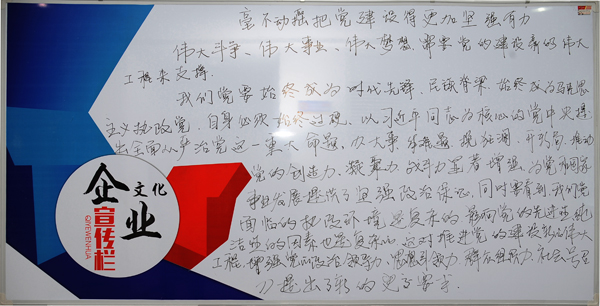 毫不动摇把党建设得更加坚强有力
伟大斗争、伟大事业、伟大梦想,都需要党的建设新的伟大
工程来支撑.
我们党要始终成为时代先锋、民族脊梁,始终成为马克思
主义执政党,自身必须始终过硬.以习近平同志为核心的党中央提
出全面从严治党这一重大命题,
党的创造力、凝聚力、战斗力显著增强,为党和国家
事业发展提供了坚强政治保证.同时要看到,我们党
面临的执政环境是复杂的,影响党的先进性、纯
洁性的因素也是复杂的,这对推进党的建设新的伟大
工程,增强党的政治领导力、思想引领力、群众组织力、社会号召
力提出了新的更高要求.
企业
文化
宣传栏
QIYEWENHUA